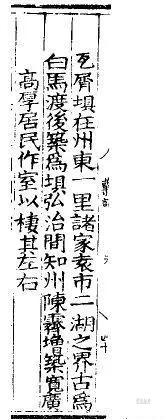 瓦屑垻在州東一里諸家袁市二湖之界古爲
白馬渡後築爲垻弘治間知州陳霽增築寛廣
高厚居民作室以棲其左右